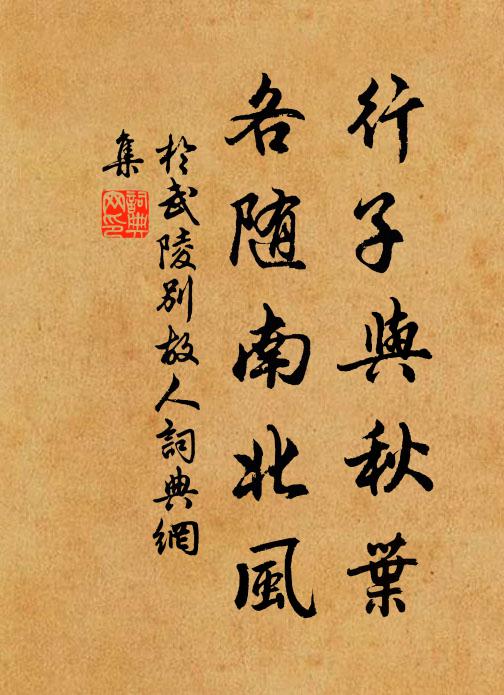 行子與秋葉
各随南北風
於武陵別故人詞典網
集
詞典网印